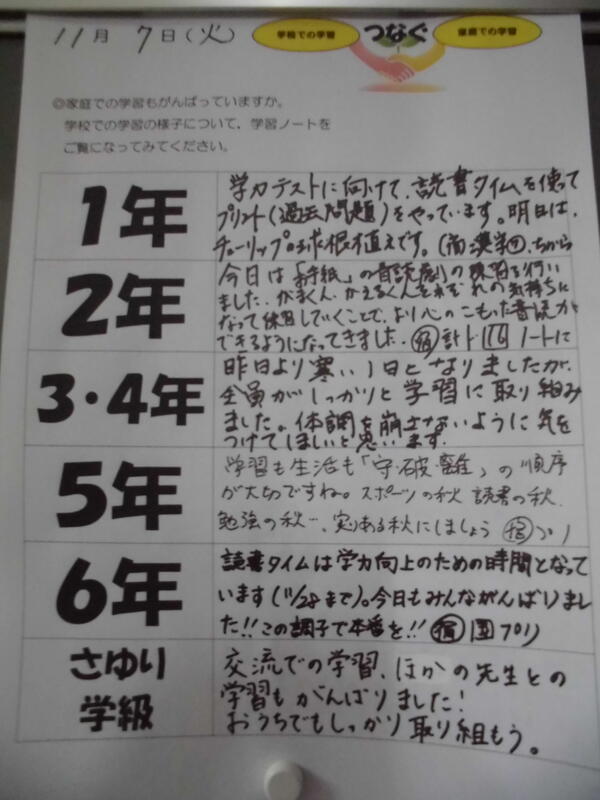 11月 7日(火)
学校での学習
つなぐ
家庭での学習
◎家庭での学習もがんばっていますか。
学校での学習の様子について、学習ノートを
ご覧になってみてください。
1年
学力テストに向けて、読書タイムを使って
プリント(過去問題)をやっています。明日は、
チューリップの球根植えです。
2年
今日は「お手紙」の音読劇の練習を行い
ました。がまくん、かえるくんそれぞれの気持ちに
なって練習していくことで、より心のこもった音読が
できるようになってきました。㊟計ド ノートに
3・4年
昨日より寒い1日となりましたが、
全員がしっかりと学習に取り組み
ました。体調を崩さないように気を
つけてほしいと思います。
5年
学習も生活も「守・破・離」の順序
が大切ですね。スポーツの秋 読書の秋
勉強の秋…、実りある秋にしましょう プリ
6年
読書タイムは学力向上のための時間となって
います(11/28まで)。今日もみんながんばりまし
た!!この調子で本番を!! 国プリ
さゆり
学級
交流での学習、ほかの先生との
学習もがんばりました!
おうちでもしっかり取り組もう。